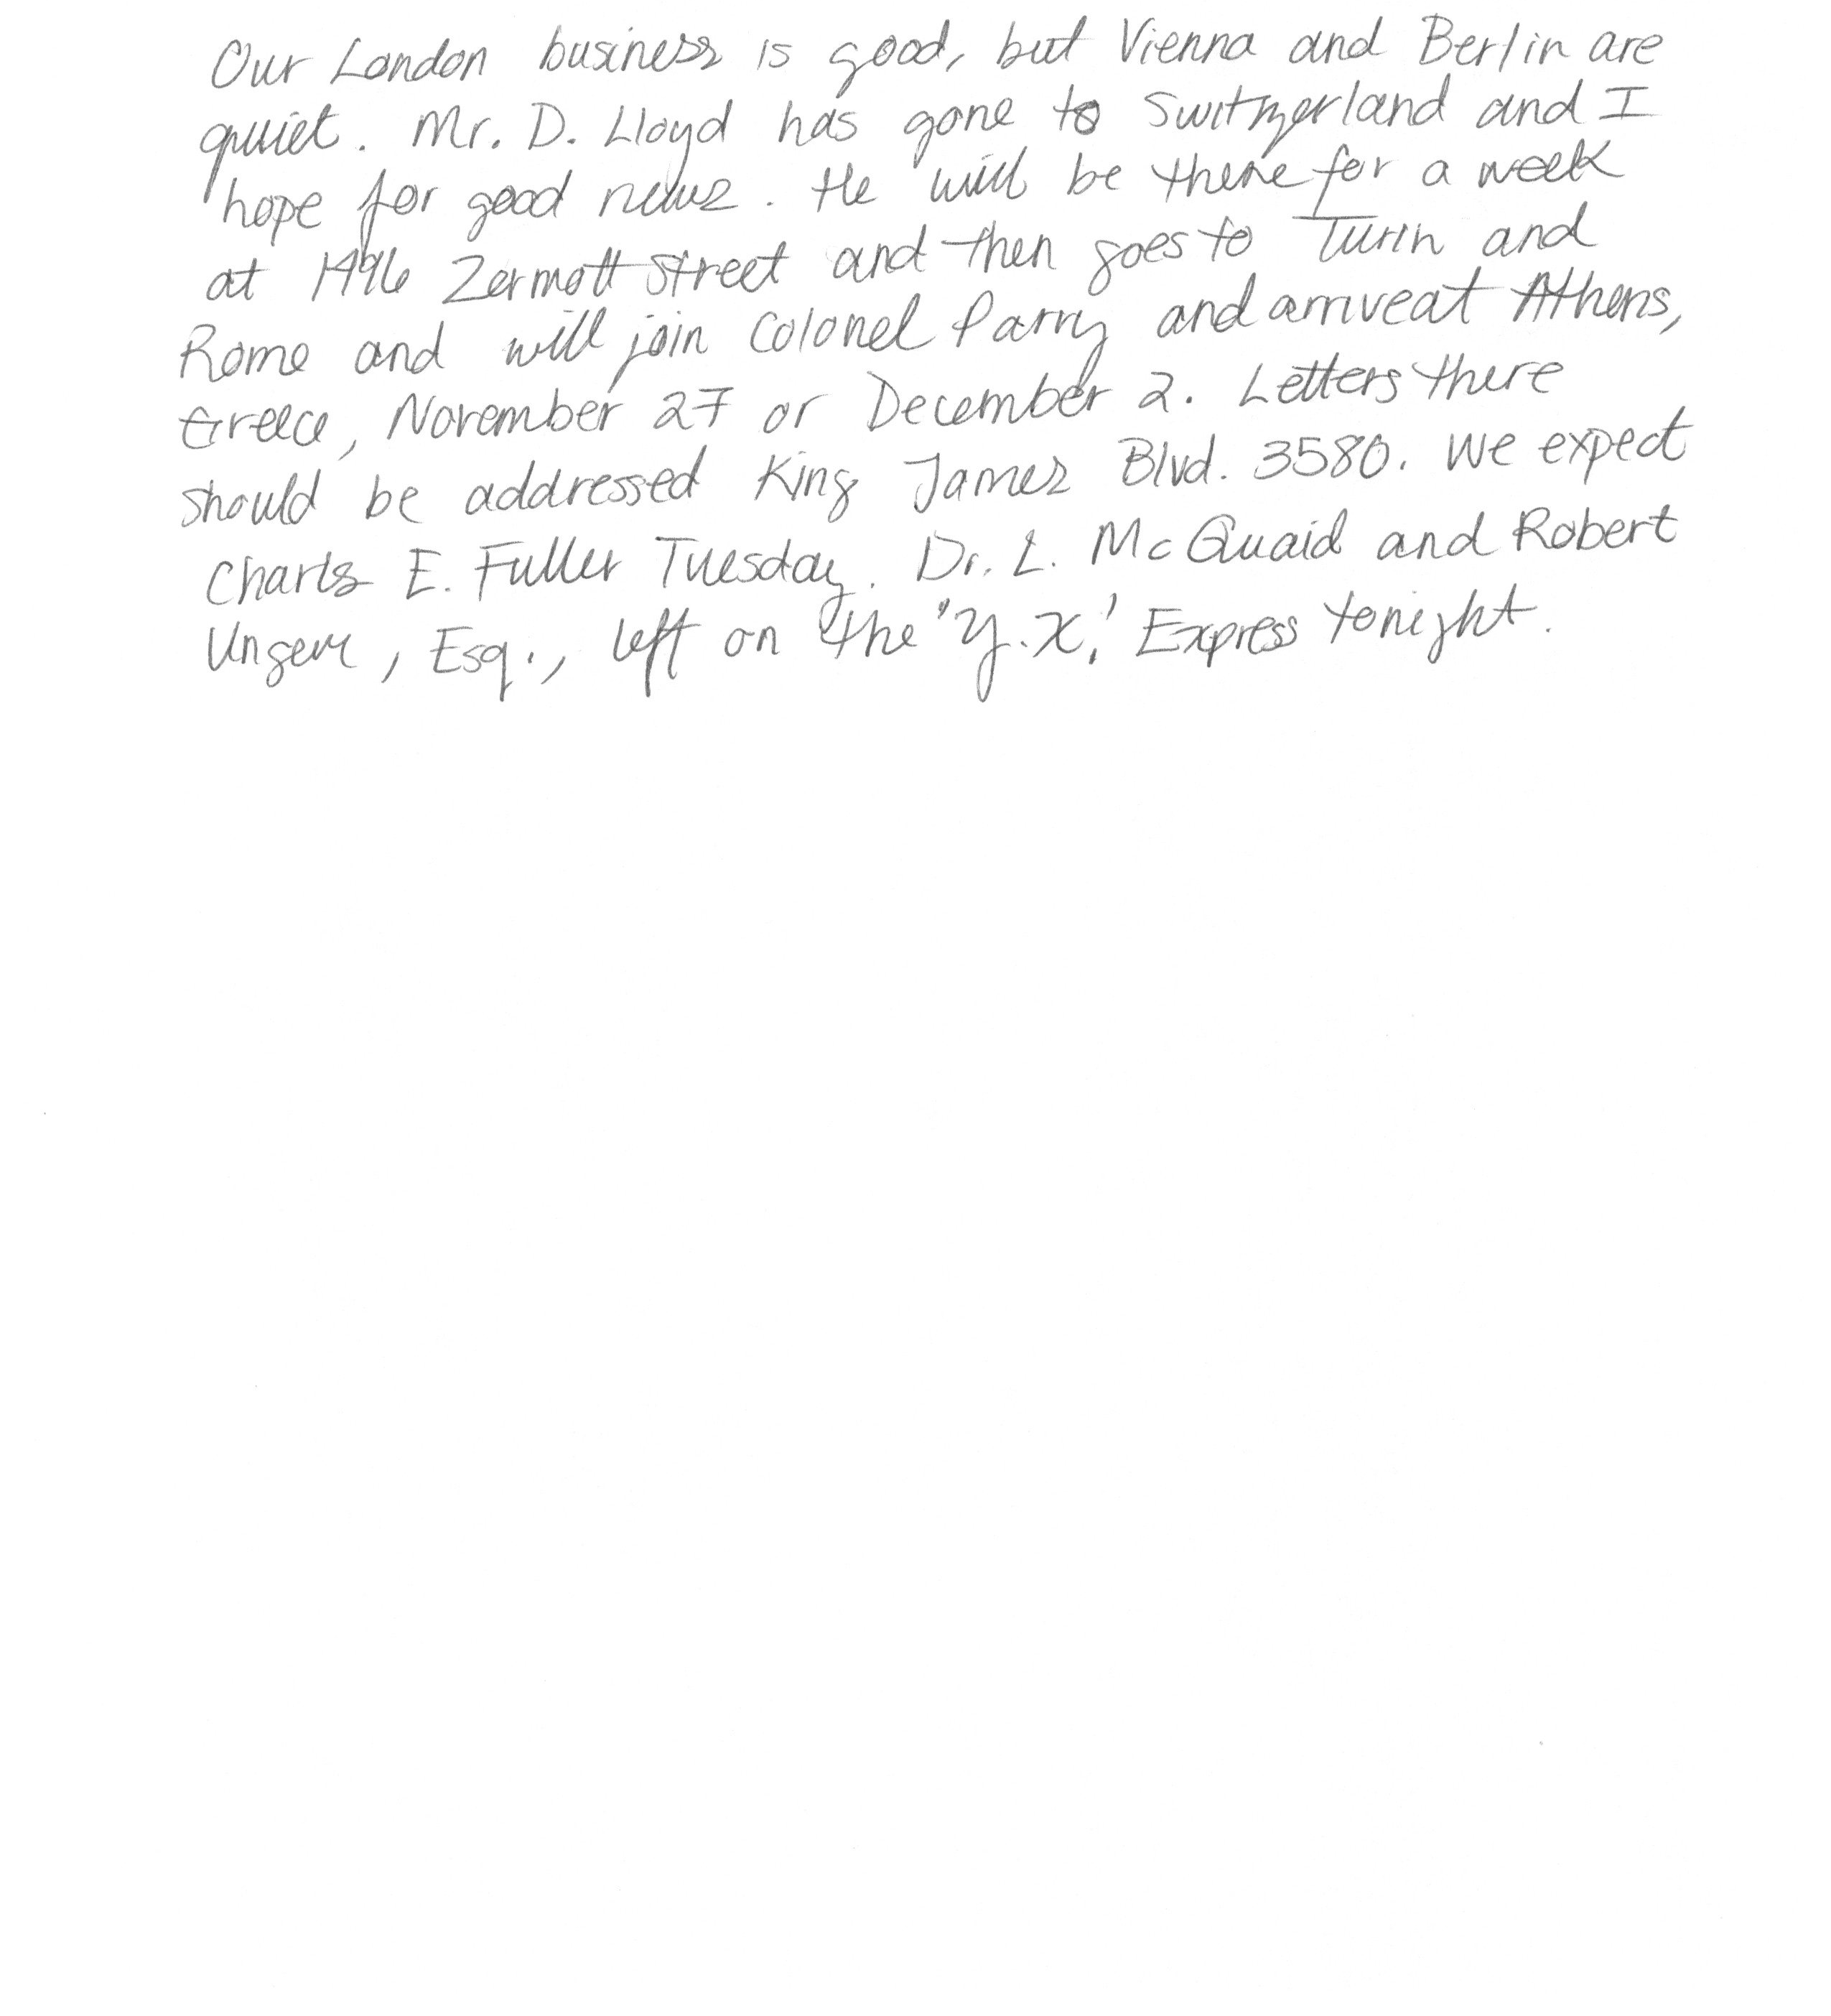 Our London business is good, but Vienna and Berlin are
quiet. Mr. D. Lloyd has gone to Switzerland and I
hope for good news. He will be there for a week
at 1496 Zermott Street and then goes to Turin and
Rome and will join Colonel Parry and arrive at Athens,
Greece, November 27 or December 2. Letters there
should be addressed King James Blvd. 3580. We expect
Charles E. Fuller Tuesday. Dr. L. McQuaid and Robert
Unger, Esq., left on the "Y.X." Express tonight.